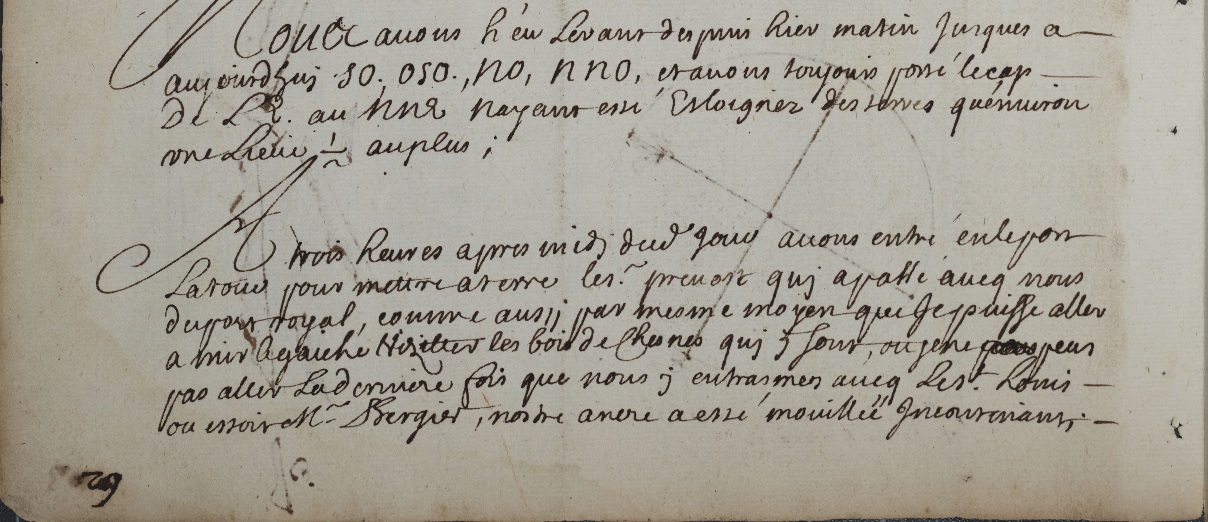 Nous auons h'éu Leuant despuis hier matin Jusques a
aujourdhuj SO. OSO., NO, NNO, et auons toujours porté le cap
De L'E. au NNE Nayant esté Esloignez des terres qu'énuiron
vne Lieuë ½ au plus ;
A trois heures apres midj dud. Jour auons entré én le port
Latour pour mettre a terre le sr. preuost quj a passé aueq nous
du port royal, comme aussj par mesme moyen que Je puisse aller
a mir lagaiche Visitter les bois de Chesnes quj y sont, ou je ne peus
pas aller La derniere fois que nous y entrasmes aueq Le St. Louis
ou estoit Mr. Bergier, nostre ancre a esté mouillée Incontinant ;
29